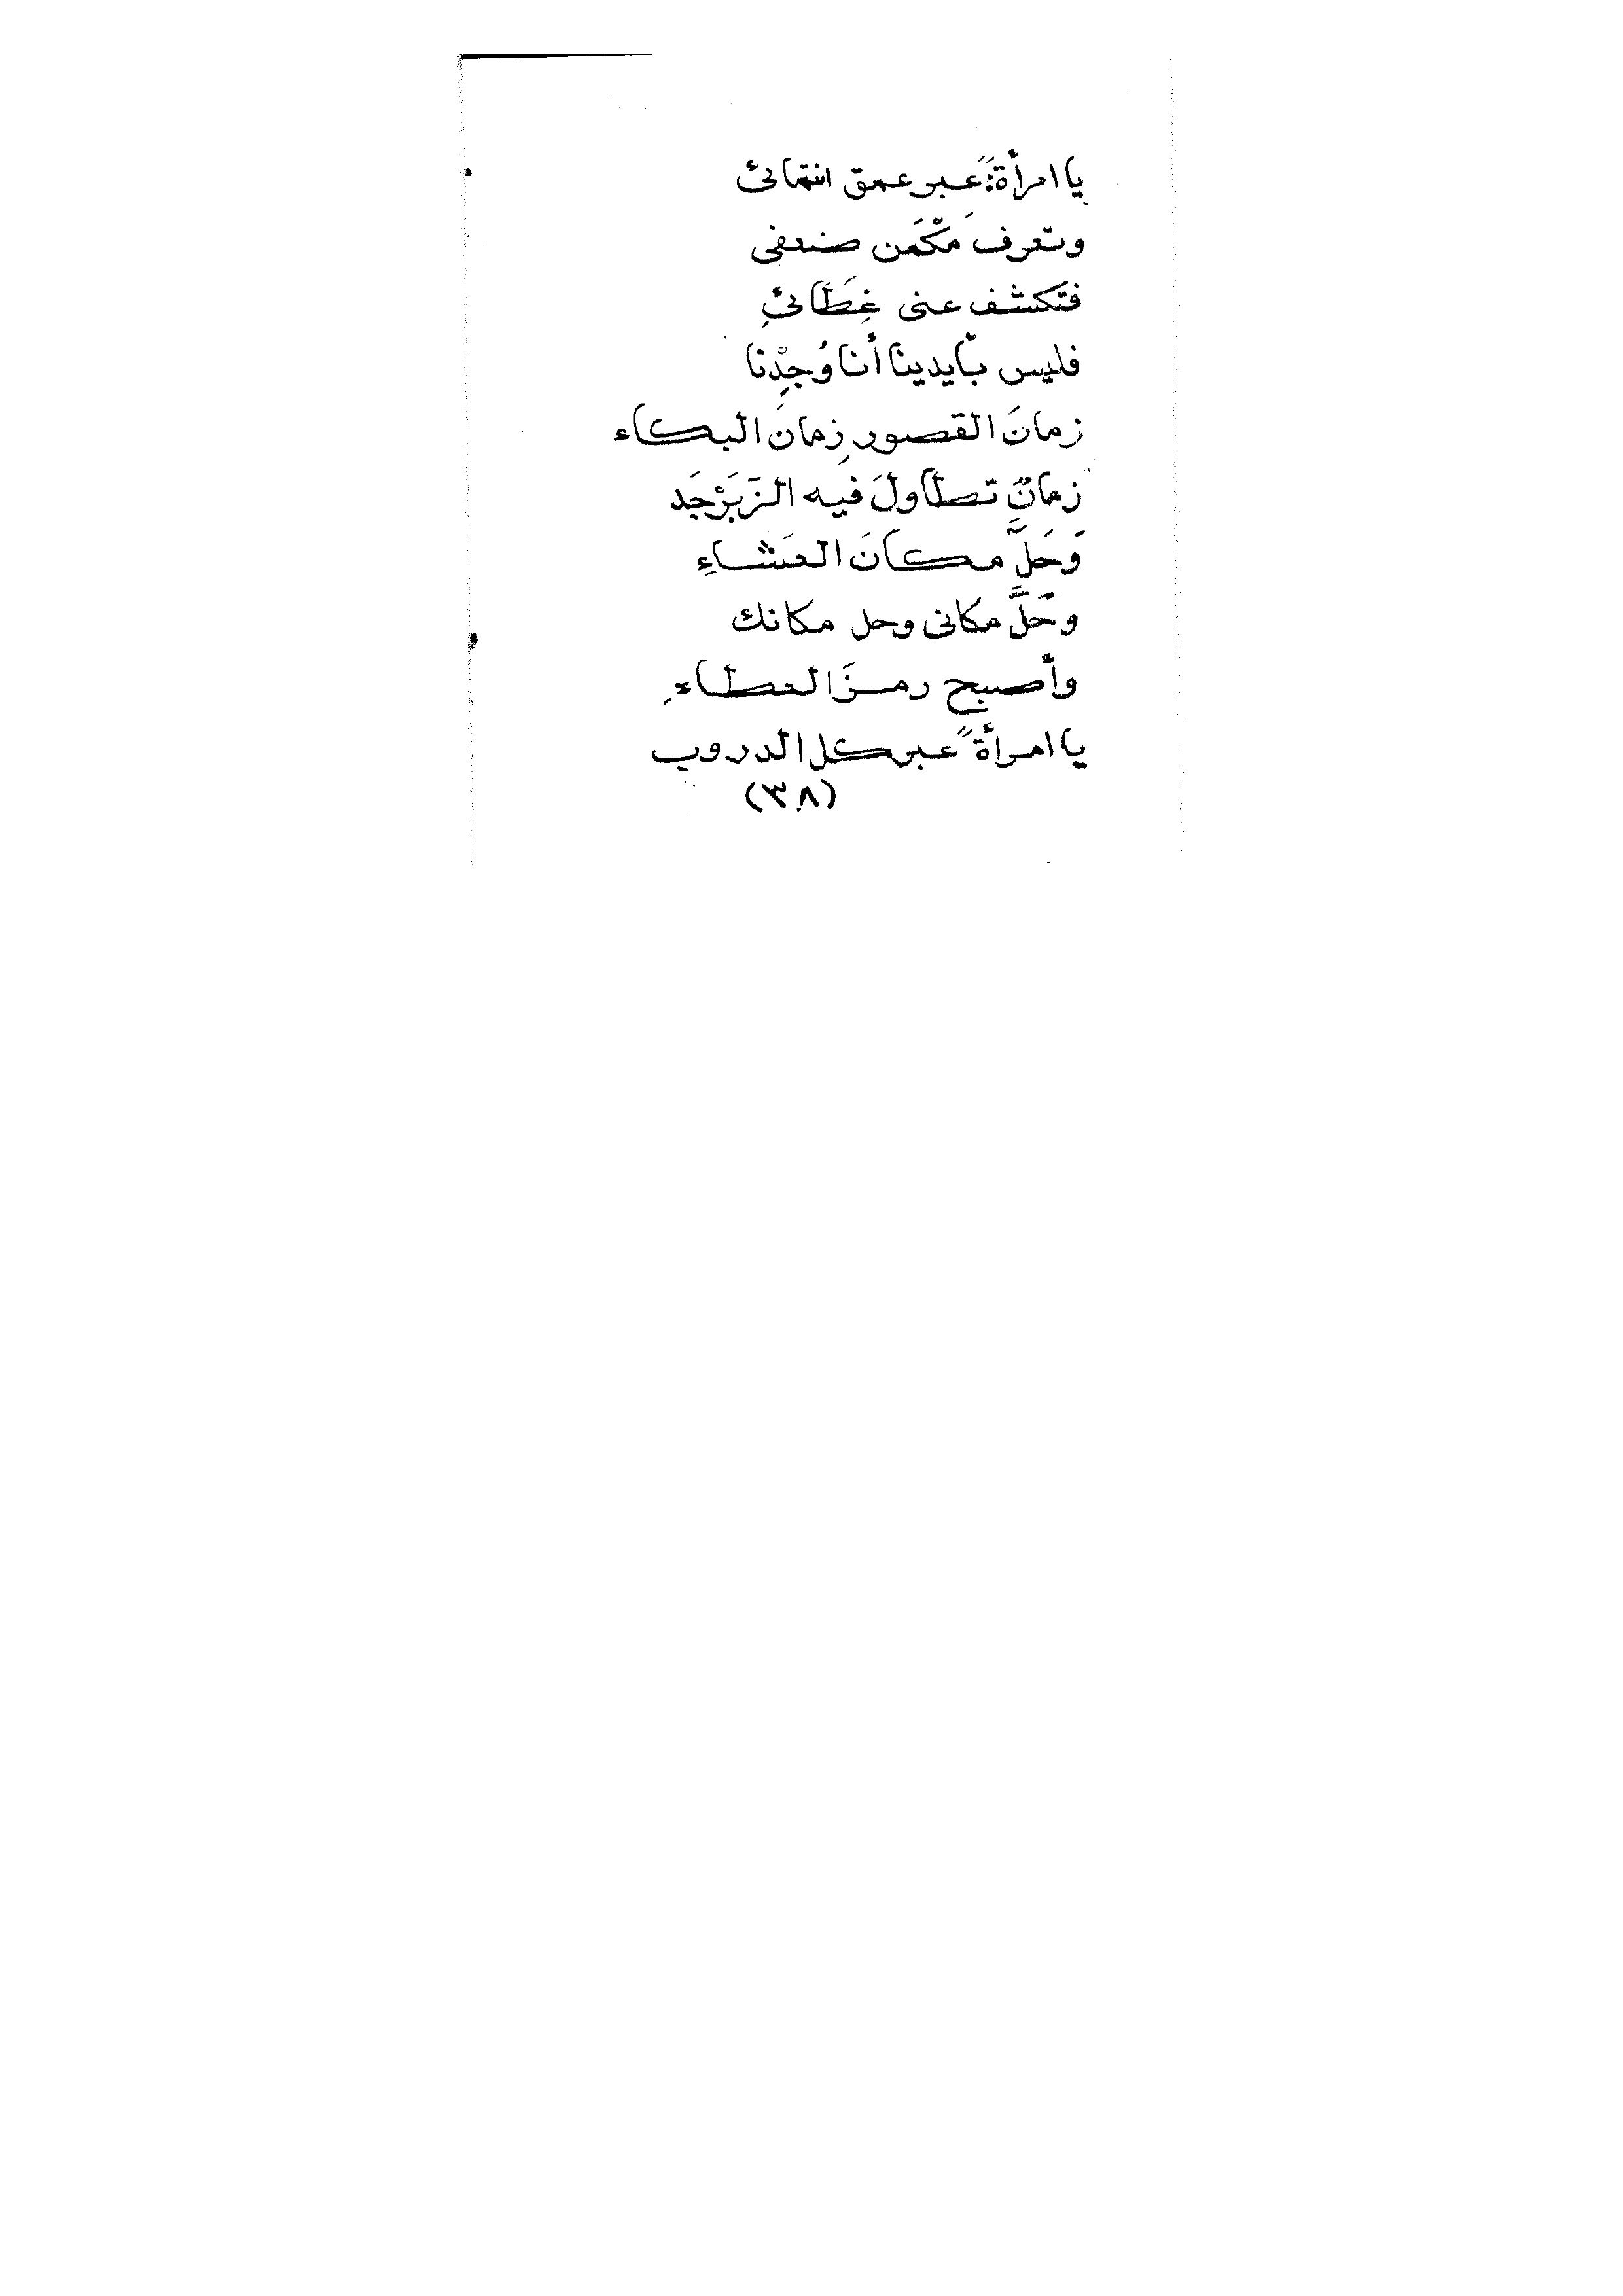 يا امرأةً: عَبر عمق انتمائى
وتعرف مَكْمَن ضعفى
فتَكشف عنى غِطَائىِ
فليس بأيدينا أنا وُجِدْنا
زمانَ القصور زِمانَ البكاء
زمانٌ تطاولَ فيه الزَبَرْجَد
وَحَلَّ مكانَ العَشاءِ
وحَلَّ مكانى وحل مكانك
وأصبح رمزَ العطاءِ
يا امرأةً عبر كل الدروب
(٣٨)